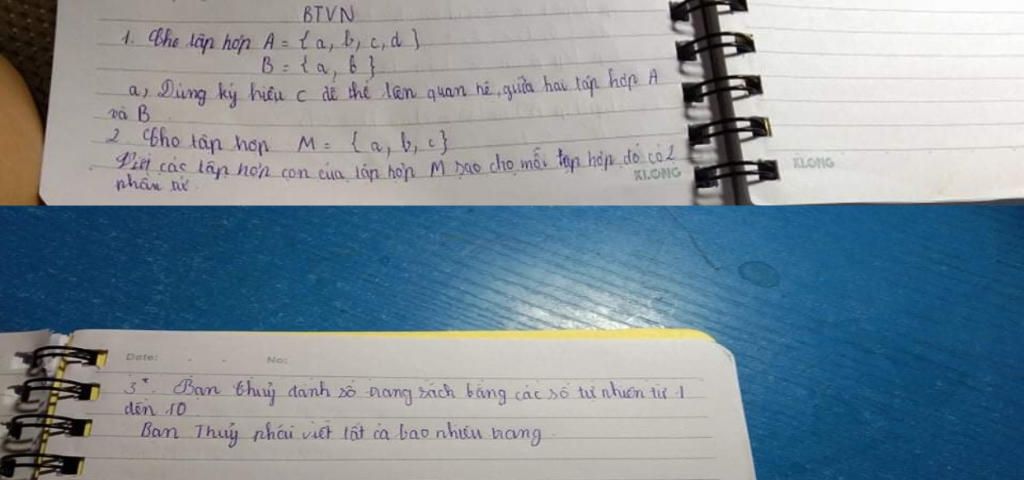 BTVN
1. Cho tập hợp A = { a, b, c, d }
B = { a, b }
a, Dùng ký hiệu c để thể hiện quan hệ giữa hai tập hợp A
và B
2. Cho tập hợp M = { a, b, c }
Viết các tập hợp con của tập hợp M sao cho mỗi tập hợp đó có 2
phần tử.
KLONG
KLONG
Date: No:
3*. Bạn Thuỷ đánh số trang sách bằng các số tự nhiên từ 1
đến 10
Bạn Thuỷ phải viết tất cả bao nhiêu trang.